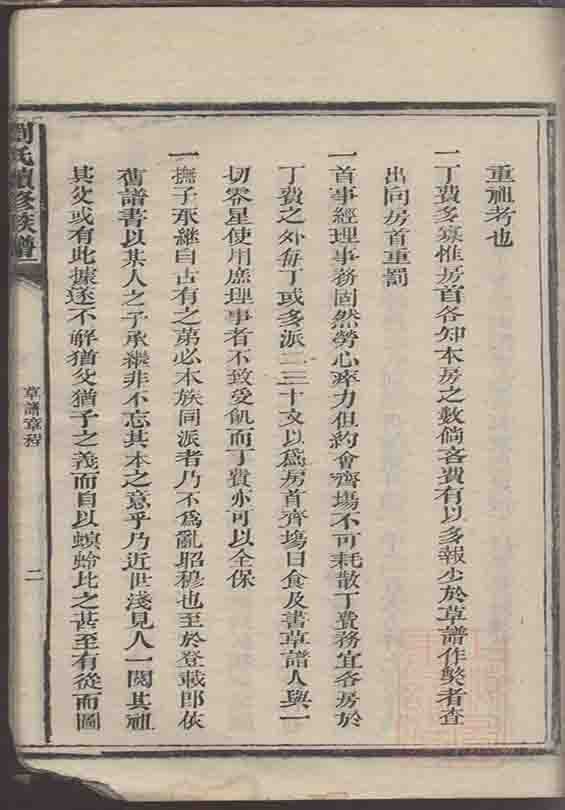 重祖考也
一丁費多寡惟房首各知本房之數倘吝費有以多報少於草譜作獘者查
出向房首重罰
一首事經理事務固然勞心瘁力但約會齊場不可耗散丁費務宜各房於
丁費之外每丁或多派二三十文以爲房首齊塲日食及書草譜人與一
切零星使用庶理事者不致受飢而丁費亦可以全保
一撫子承繼自古有之第必本族同派者乃不爲亂昭穆也至於登載即依
舊譜書以某人之子承繼非不忘其本之意乎乃近世淺見人一閱其祖
其父或有此據遂不解猶父猶子之義而自以螟蛉比之甚至有從而圖
劉氏續修族譜
草譜章程
二